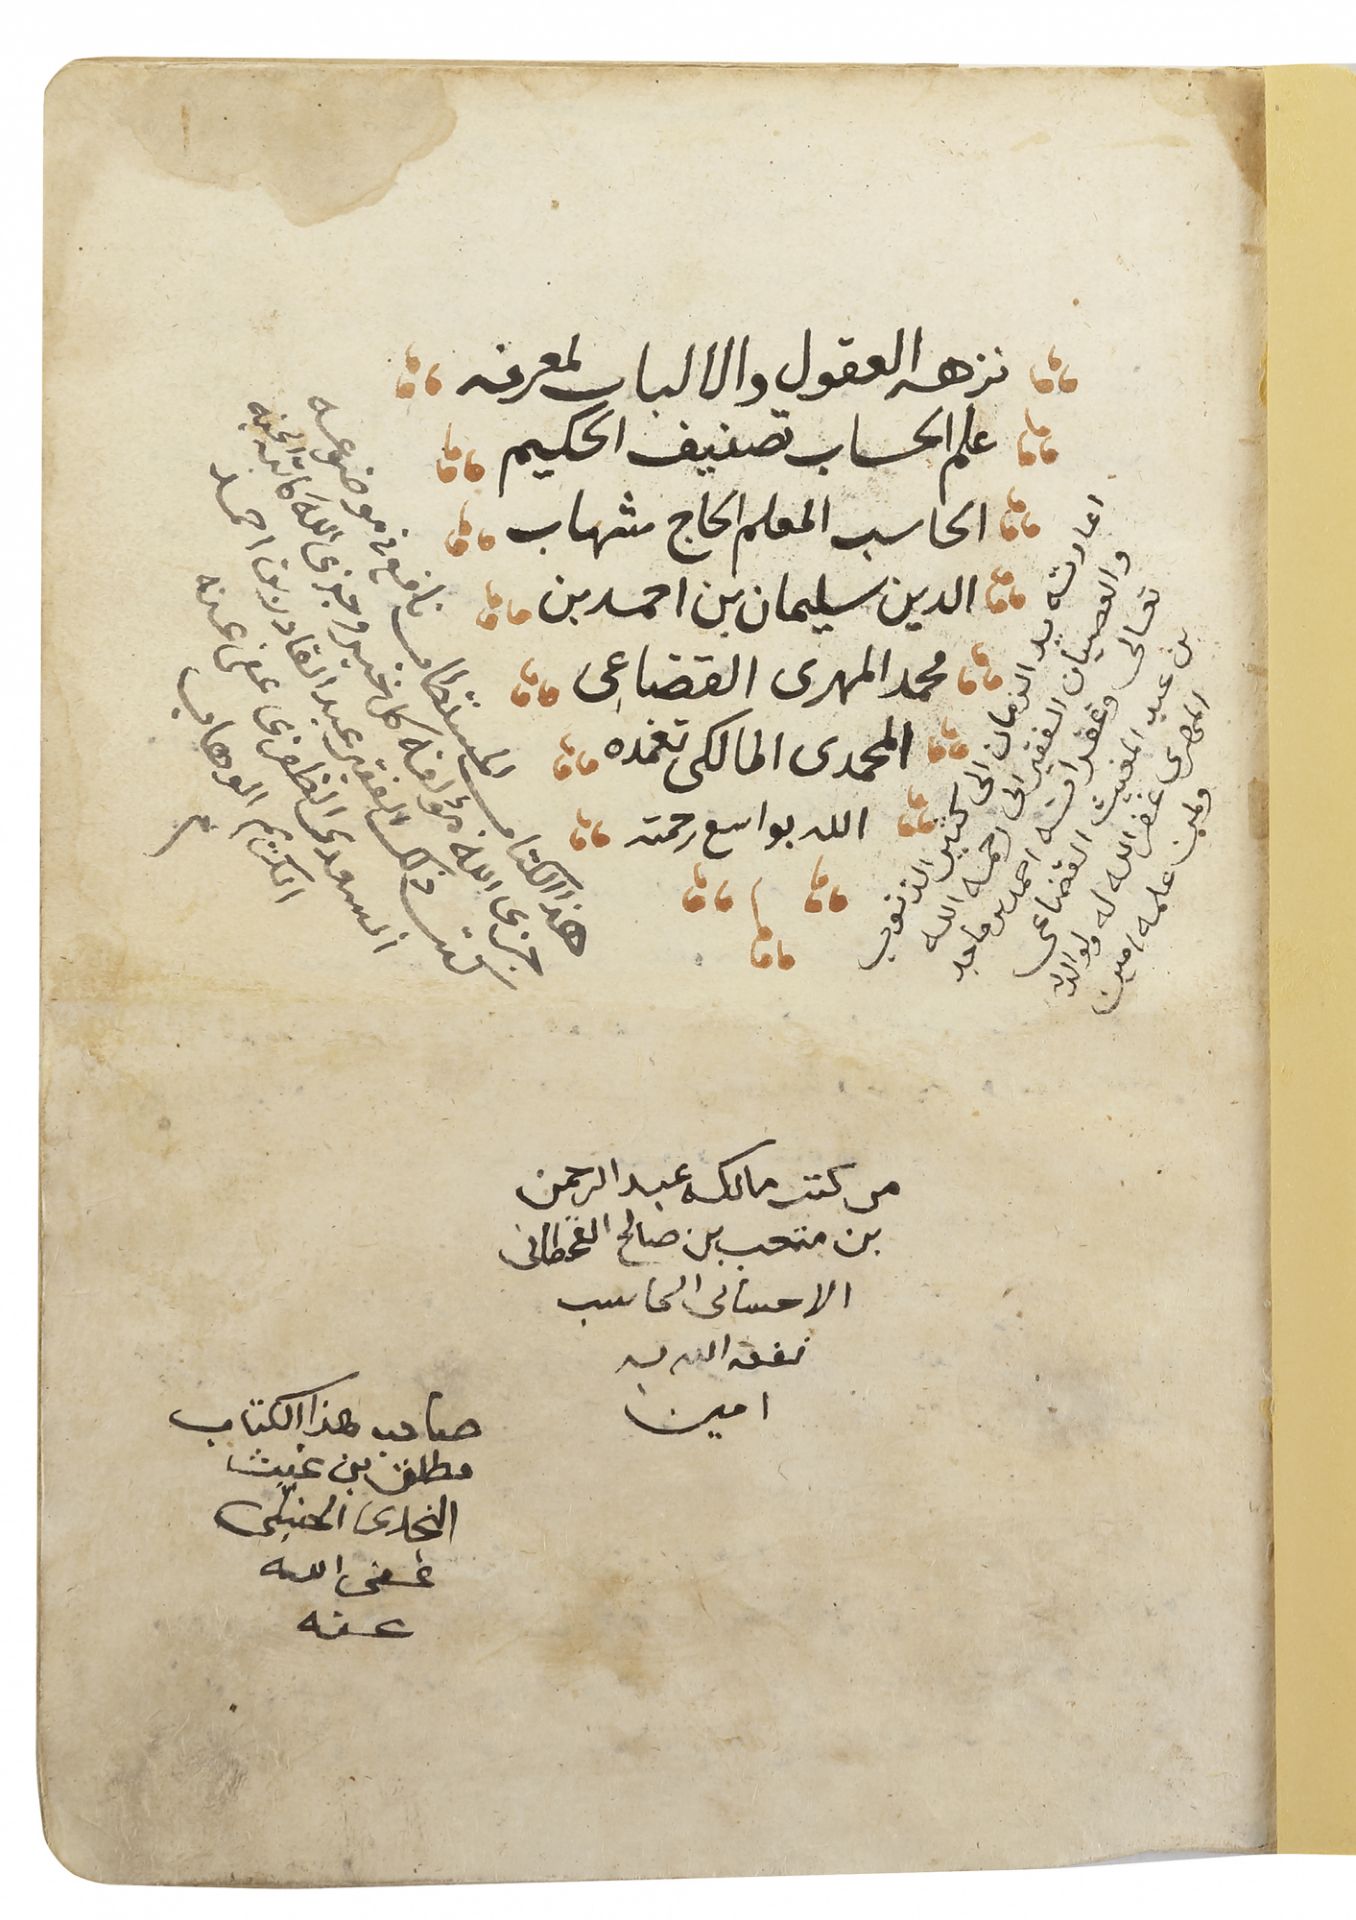 نزهه العقول والالباب لمعرفه
علم الحساب تصنيف الحكيم
الحاسب المعلم الحاج شهاب
الدين سليمان بن احمد بن
محمد المهرى القضاعى
المحمدى المالكى تغمده
الله بواسع رحمته
اعارته يد الزمان الى كثير الذنوب
والعصيان الفقير الى رحمة الله
تعالى وغفرانه احمد بن ماجد
بن عبد المغيث القضاعى
المصرى غفر الله له ولوالديه
ولمن علمه امين
هذا الكتاب المستطاب نافع فى موضوعه
جزى الله مؤلفه كل خير وجزى الله كاتبه الجنه
كتب ذلك الفقير عبد القادر بن احمد
السعدى الظفرى عفى عنه
الكريم الوهاب
م
من كتب مالكه عبد الرحمن
بن متعب بن صالح القحطانى
الاحسائى الحاسب
نفعه الله به
امين
صاحب هذا الكتاب
مطلق بن غيث
النجدى الحنبلى
عفى الله
عنه